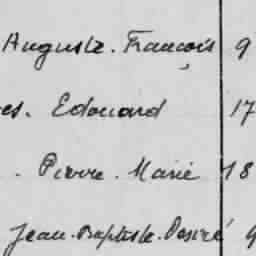 Auguste. François 9
es. Edouard 17
. Pierre. Marie 18
Jean. Baptiste. Desiré 9